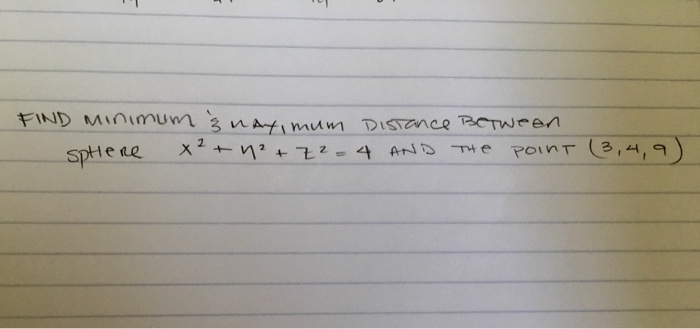 FIND MINIMUM & MAXIMUM DISTANCE BETWEEN
SPHERE x² + y² + z² = 4 AND THE POINT (3,4,9)